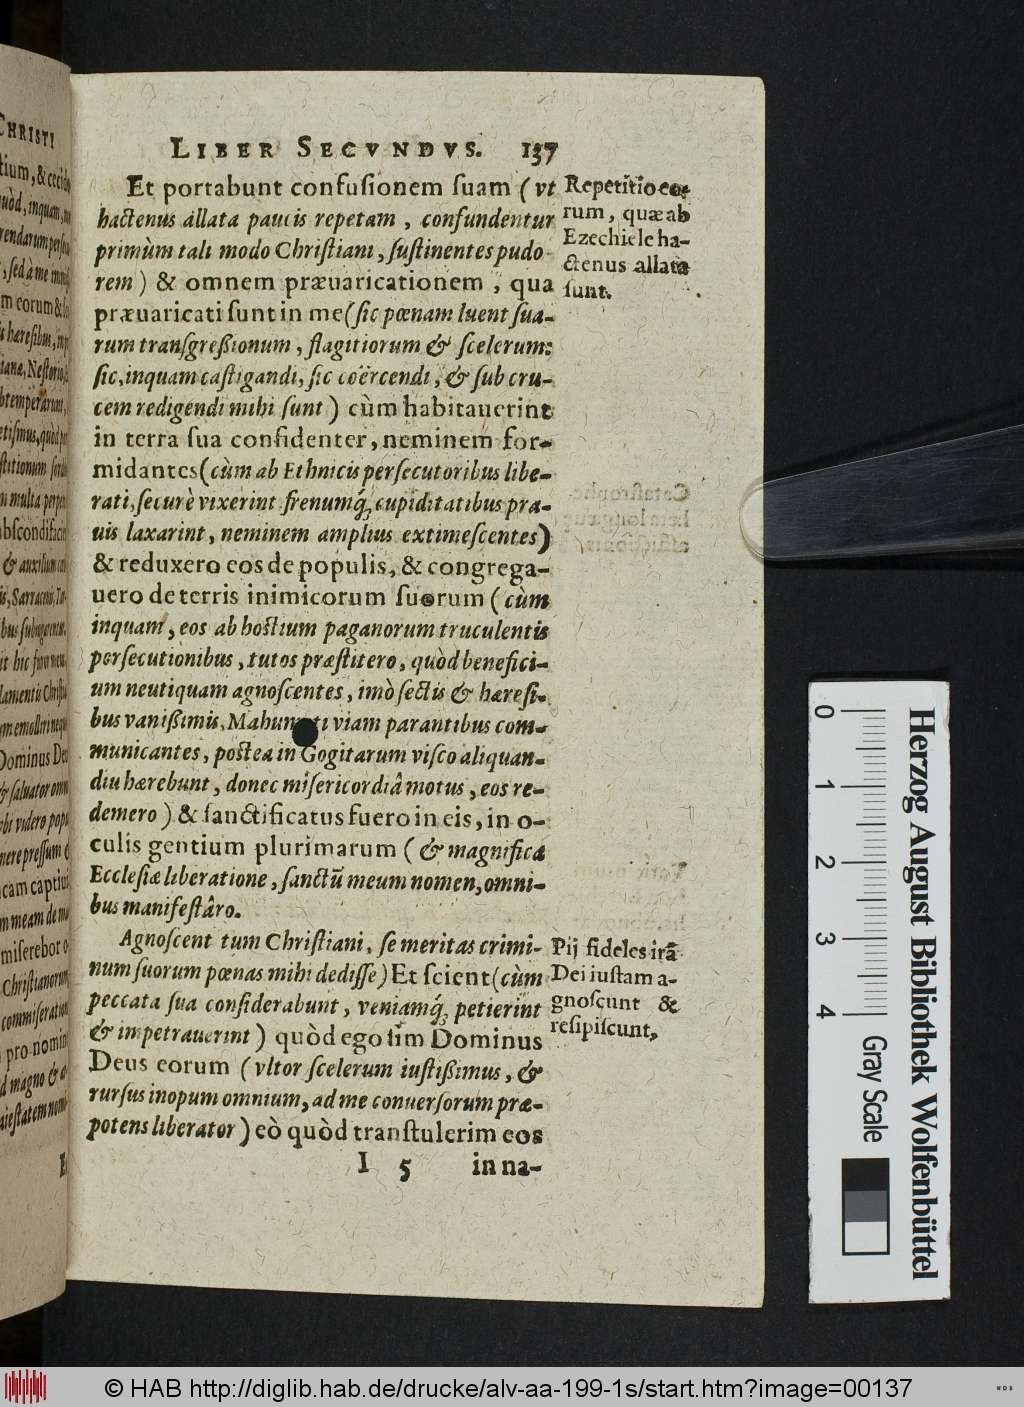 LIBER SECVNDVS. 137
Et portabunt confusionem suam (vt
hactenus allata paucis repetam, confundentur
primùm tali modo Christiani, sustinentes pudo
rem) & omnem præuaricationem, qua
præuaricati sunt in me (sic pœnam luent sua-
rum transgreßionum, flagitiorum & scelerum:
sic, inquam castigandi, sic coërcendi, & sub cru-
cem redigendi mihi sunt) cùm habitauerint
in terra sua confidenter, neminem for-
midantes (cùm ab Ethnicis persecutoribus libe-
rati, securè vixerint frenumq́; cupiditatibus pra-
uis laxarint, neminem amplius extimescentes)
& reduxero eos de populis, & congrega-
uero de terris inimicorum suorum (cùm
inquam, eos ab hostium paganorum truculentis
persecutionibus, tutos præstitero, quòd benefici-
um neutiquam agnoscentes, imò sectis & hæresi-
bus vanißimis, viam parantibus com-
municantes, postea in Gogitarum visco aliquan-
diu hærebunt, donec misericordiâ motus, eos re-
demero) & sanctificatus fuero in eis, in o-
culis gentium plurimarum (& magnifica
Ecclesiæ liberatione, sanctũ meum nomen, omni-
bus manifestâro.
Agnoscent tum Christiani, se meritas crimi-
num suorum pœnas mihi dedisse) Et scient (cùm
peccata sua considerabunt, veniamq́; petierint
& impetrauerint) quòd ego sim Dominus
Deus eorum (vltor scelerum iustißimus, &
rursus inopum omnium, ad me conuersorum præ-
potens liberator) eò quòd transtulerim eos
I 5 in na-
Repetitio eo-
rum, quæ ab
Ezechiele ha-
ctenus allata
sunt.
Pij fideles irã
Dei iustam a-
gnoscunt &
resipiscunt,
CHRISTI
0 1 2 3 4
Gray Scale
Herzog August Bibliothek Wolfenbüttel
© HAB http://diglib.hab.de/drucke/alv-aa-199-1s/start.htm?image=00137